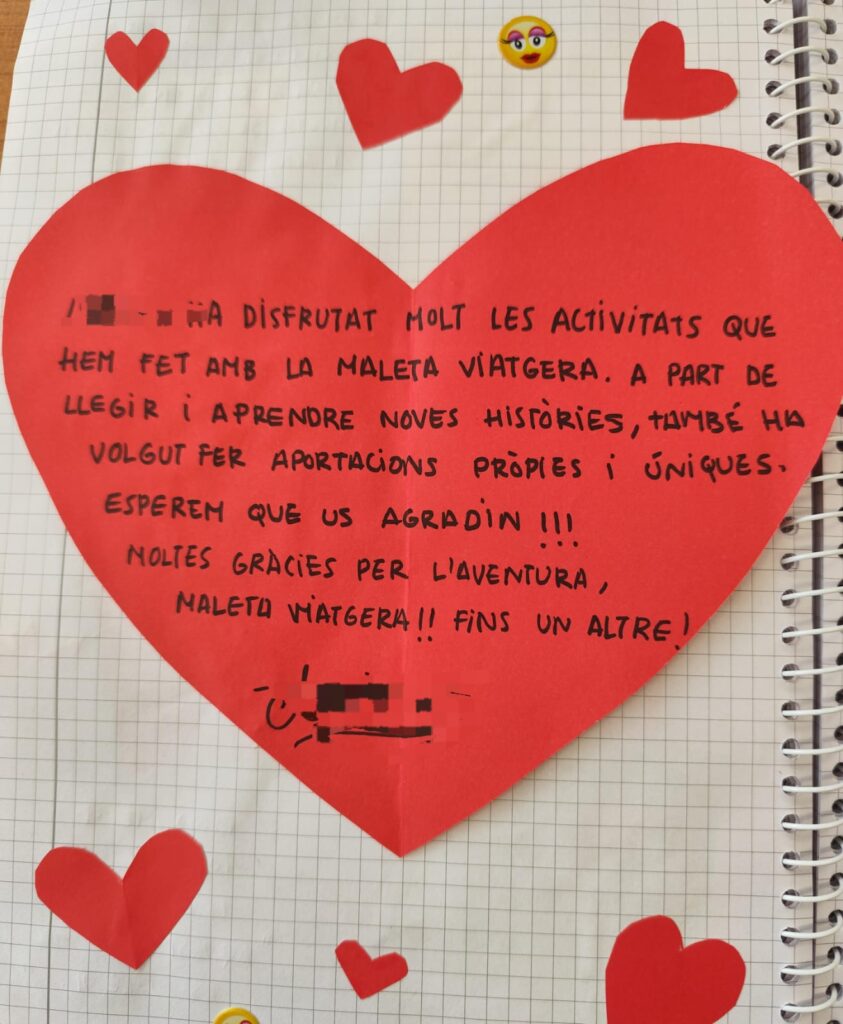 HA DISFRUTAT MOLT LES ACTIVITATS QUE
HEM FET AMB LA MALETA VIATGERA. A PART DE
LLEGIR I APRENDRE NOVES HISTÒRIES, TAMBÉ HA
VOLGUT FER APORTACIONS PRÒPIES I ÚNIQUES.
ESPEREM QUE US AGRADIN !!!
MOLTES GRÀCIES PER L'AVENTURA,
MALETA VIATGERA!! FINS UN ALTRE!